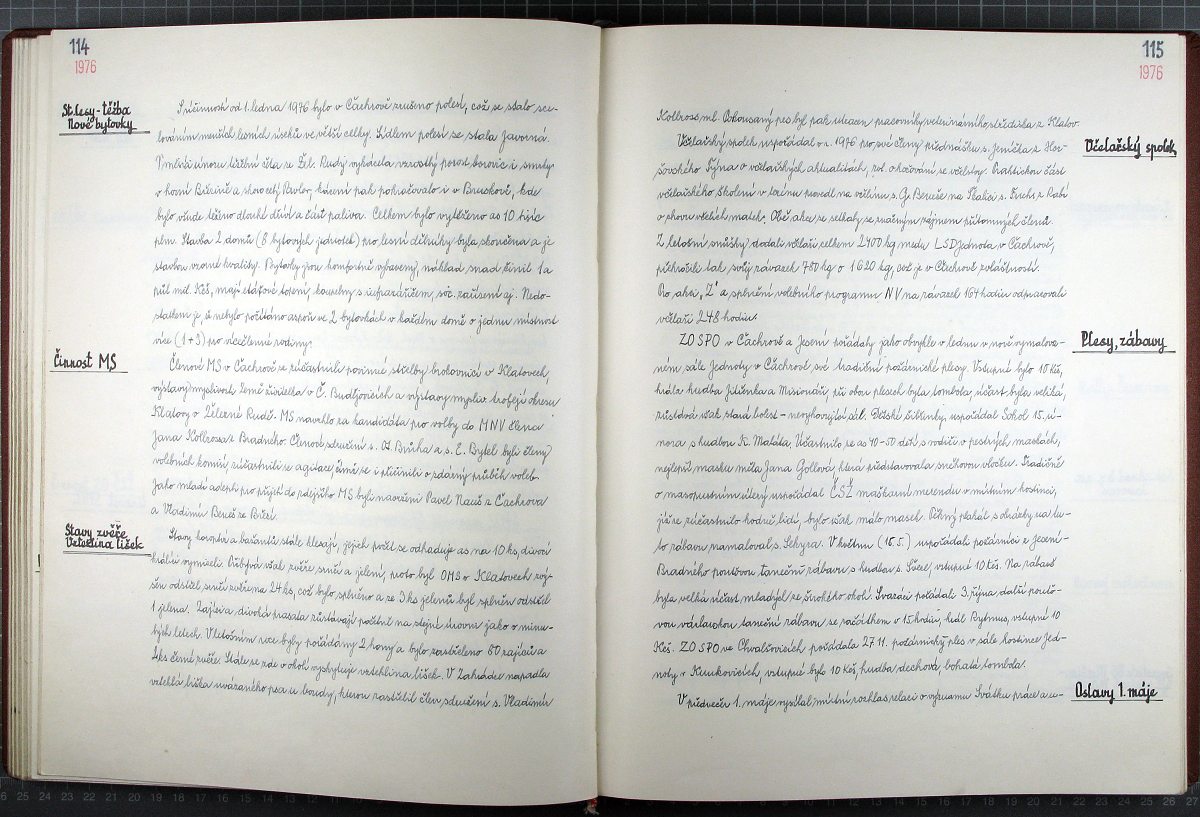 114
1976
St. lesy - těžba
Nové bytovky
S účinností od 1. ledna 1976 bylo v Čachrově zrušeno polesí, což se stalo sce-
lováním menších lesních úseků ve větší celky. Sídlem polesí se stala Javorná.
V měsíci únoru těžební četa ze Žel. Rudy vykácela vzrostlý porost borovic i smrky
v horní Březině a kácení pak pokračovalo i v Bruckově, kde
bylo všude těženo dlouhé dříví a část paliva. Celkem bylo vytěženo as 10 tisíc
plm. Stavba 2 domů (8 bytových jednotek) pro lesní dělníky byla skončena a je
stavbou vzorné kvality. Bytovky jsou komfortně vybaveny, náklad snad činil 1 a
půl mil. Kčs, mají etážové topení, koupelny s infrazářičem, soc. zařízení aj. Nedo-
statkem je, že nebylo počítáno aspoň ve 2 bytovkách v každém domě o jednu místnost
více (1+3) pro vícečlenné rodiny.
Činnost MS
Členové MS v Čachrově se zúčastnili povinné střelby brokovnicí v Klatovech,
výstavy myslivosti Země živitelka v Č. Budějovicích a výstavy mysliv. trofejí okresu
Klatovy v Železné Rudě. MS navrhlo za kandidáta pro volby do MNV člena
Jana Kollrosse z Bradného. Členové sdružení s. Ot. Brůha a s. E. Bytel byli členy
volebních komisí, zúčastnili se agitace čímž se i přičinili o zdárný průběh voleb.
Jako mladí adepti pro přijetí do zdejšího MS byli navrženi Pavel Nauš z Čachrova
a Vladimír Beneš ze Březí.
Stavy zvěře
Vzteklina lišek
Stavy koroptví a bažantů stále klesají, jejich počet se odhaduje as na 10 ks, divocí
králíci vymizeli. Přibývá však zvěře srnčí a jelení, proto byl OMS v Klatovech zvý-
šen odstřel srnčí zvěře na 24 ks, což bylo splněno a ze 3 ks jelenů byl splněn odstřel
1 jelena. Zajíci a divoká prasata zůstávají početně na stejné úrovni jako v minu-
lých letech. V letošním roce byly pořádány 2 hony a bylo zastřeleno 60 zajíců a
4 ks černé zvěře. Stále se zde v okolí vyskytuje vzteklina lišek. V Zahrádce napadla
vzteklá liška uvázaného psa u boudy, kterou zastřelil člen sdružení s. Vladimír
115
1976
Kollross ml. Pokousaný pes byl pak utracen pracovníky veterinárního střediska z Klatov.
Včelařský spolek
Včelařský spolek uspořádal v r. 1976 pro své členy přednášku s. Jeníčka z Hor-
šovského Týna o včelařských aktualitách, zvl. o kočování se včelstvy. Praktickou část
včelařského školení v terénu provedl na včelínu s. Gy. Bereše na Skalici s. Fuchs z Rabí
o chovu včelích matek. Obě akce se setkaly se značným zájmem přítomných členů.
Z letošní snůšky dodali včelaři celkem 2400 kg medu LSD Jednota v Čachrově,
překročili tak svůj závazek 780 kg o 1620 kg, což je v Čachrově zvláštností.
Po akci „Z“ a splnění volebního programu NV na závazek 164 hodin odpracovali
včelaři 248 hodin.
Plesy, zábavy
ZO SPO v Čachrově a Jesení pořádaly jako obvykle v lednu v nově vymalova-
ném sále Jednoty v Čachrově své tradiční požárnické plesy. Vstupné bylo 10 Kčs,
hrála hudba Jitřenka a Misionáři, při obou plesech byla tombola, účast byla veliká,
zůstává však stará bolest - nevyhovující sál. Dětské šibřinky uspořádal Sokol 15. ú-
nora s hudbou K. Matata. Účastnilo se as 40-50 dětí s rodiči v pestrých maskách,
nejlepší masku měla Jana Gollová, která představovala sněhovou vločku. Tradičně
o masopustním úterý uspořádal ČSŽ maškarní merendu v místním hostinci,
jíž se zúčastnilo hodně lidí, bylo však málo masek. Pěkný plakát s obrázky na tu-
to zábavu namaloval s. Sekyra. V květnu (15.5.) uspořádali požárníci z Jesení-
Bradného pouťovou taneční zábavu s hudbou s. Švece, vstupné 10 Kčs. Na zábavě
byla velká účast mladých ze širokého okolí. Svazáci pořádali 3. října další pouťo-
vou václavskou taneční zábavu se začátkem v 15 hodin, hrál Rytmus, vstupné 10
Kčs. ZO SPO ve Chvalšovicích pořádala 27.11. požárnický ples v sále hostince Jed-
noty v Kunkovicích, vstupné bylo 10 Kčs, hudba dechová, bohatá tombola.
Oslavy 1. máje
V předvečer 1. máje vysílal místní rozhlas relaci o významu Svátku práce a u-